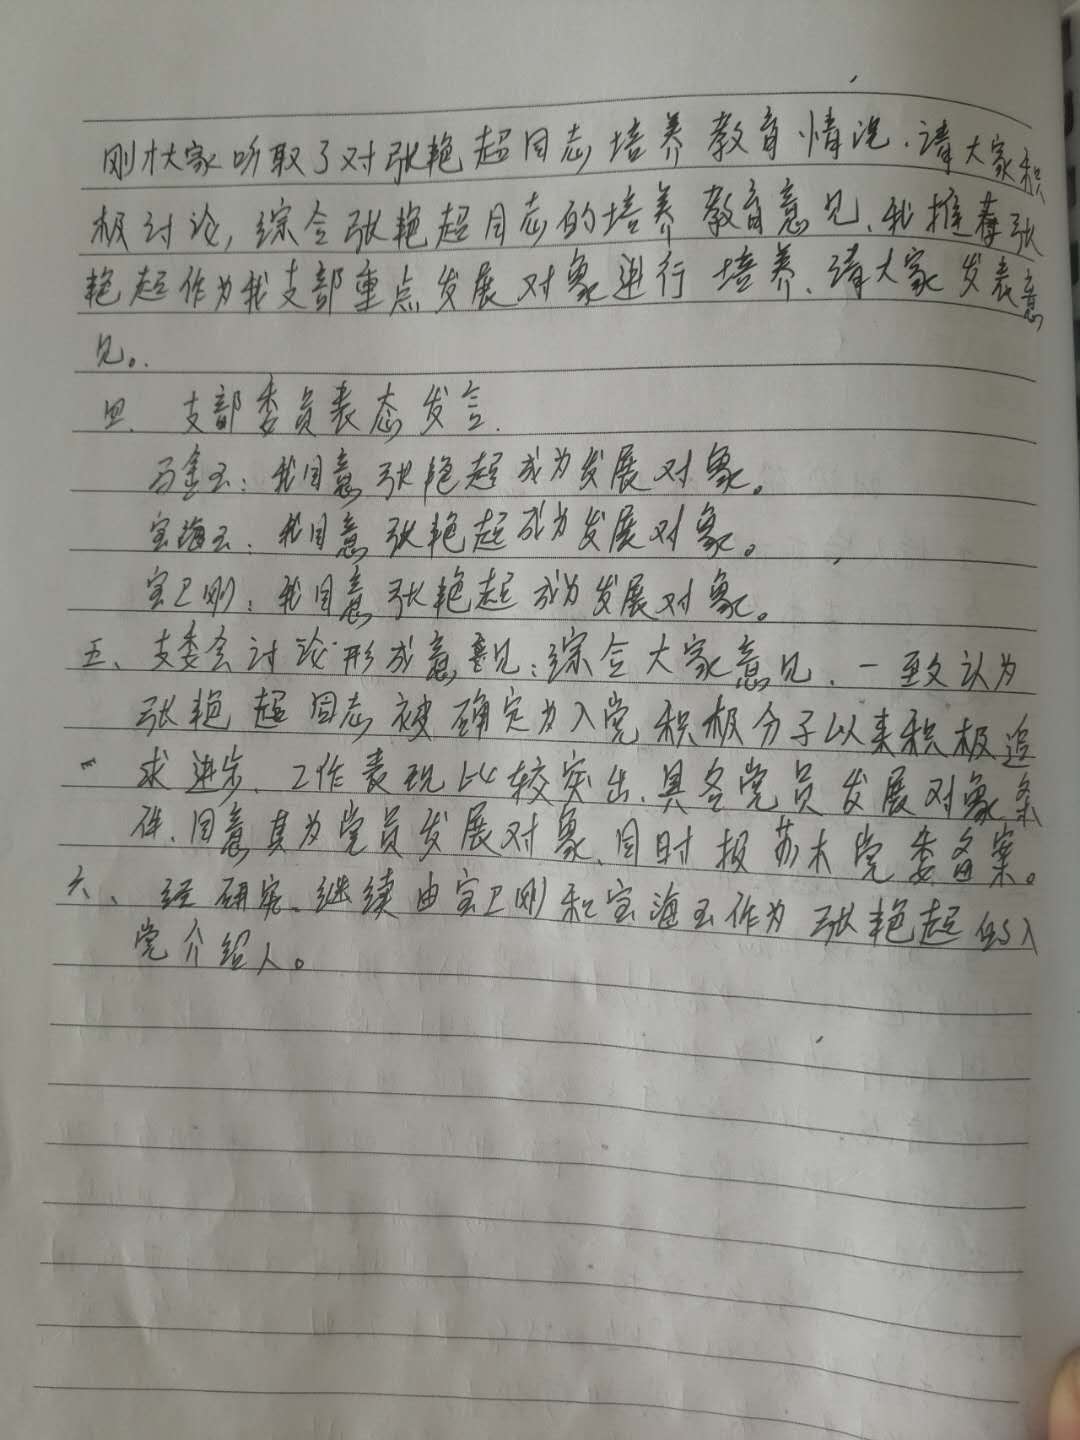 刚才大家听取了对张艳超同志培养教育情况.请大家积
极讨论,综合张艳超同志的培养教育意见、我推荐张
艳超作为我支部重点发展对象进行培养、请大家发表意
见。
四、支部委员表态发言.
马金玉:我同意张艳超成为发展对象。
宝海玉:我同意张艳超成为发展对象。
宝卫刚:我同意张艳超成为发展对象。
五、支委会讨论形成意见:综合大家意见、一致认为
张艳超同志被确定为入党积极分子以来积极追
求进步、工作表现比较突出、具备党员发展对象条
件、同意其为党员发展对象、同时报苏木党委备案。
六、经研究、继续由宝卫刚和宝海玉作为张艳超的入
党介绍人。